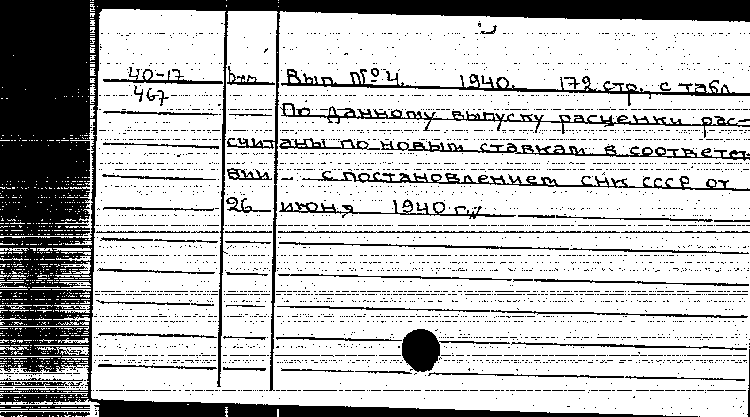 40-17 Вып. №4. 1940. 172 стр., с табл.
467
По данному выпуску расценки рас-
считаны по новым ставкам в соответст
вии с постановлением СНК СССР от
26 июня 1940 г.